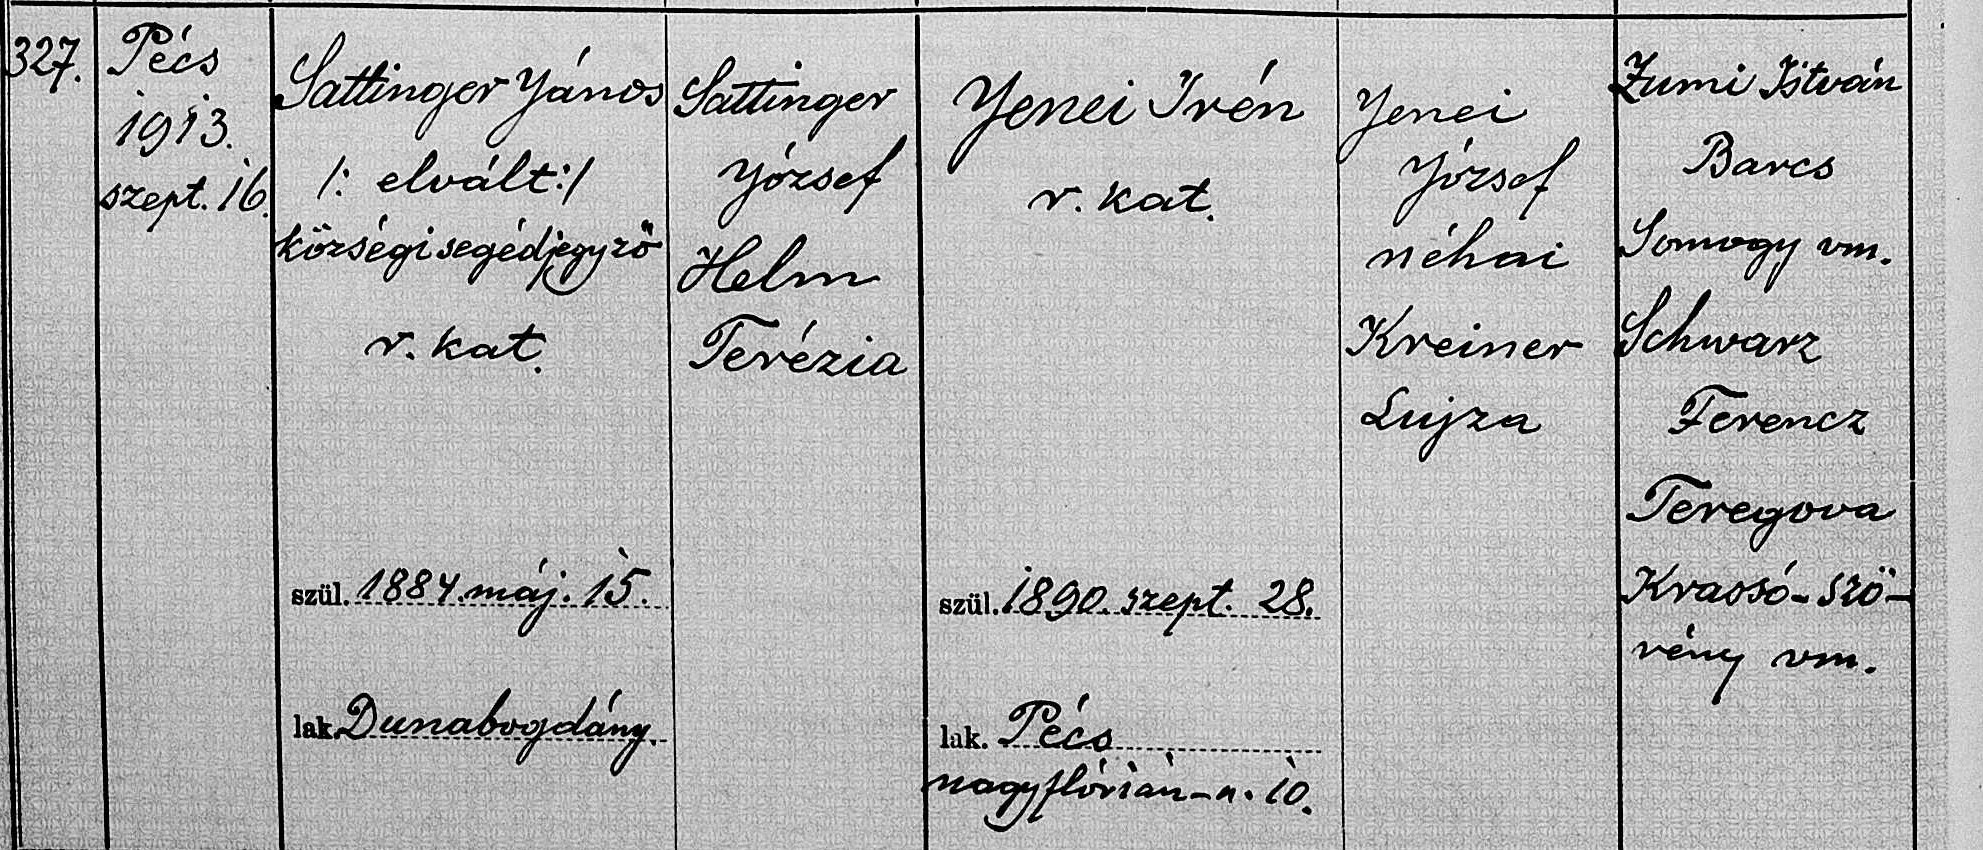 327.
Pécs
1913.
szept. 16.
Sattinger János
/: elvált :/
községi segédjegyző
r. kat.
szül. 1884. máj. 15.
lak. Dunabogdány.
Sattinger
József
Helm
Terézia
Jenei Irén
r. kat.
szül. 1890. szept. 28.
lak. Pécs
nagyflórián-u. 10.
Jenei
József
néhai
Kreiner
Lujza
Zumi István
Barcs
Somogy vm.
Schwarz
Ferencz
Teregova
Krassó-Szö-
rény vm.